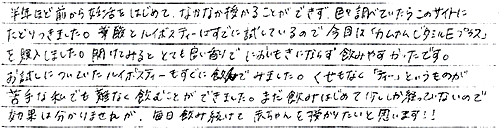 半年ほど前から妊活をはじめて、なかなか授かることができず、色々調べていたらこのサイトに
たどりつきました。葉酸とルイボスティーはすでに試しているので今回は「カムカムビタミルEプラス」
を購入しました。開けてみるととても良い香りでにおいもきにならず飲みやすかったです。
お試しについていたルイボスティーもすぐに飲んでみました。くせもなく「ティー」というものが
苦手な私でも難なく飲むことができました。まだ飲みはじめて少ししか経っていないので
効果は分かりませんが、毎日飲み続けて赤ちゃんを授かりたいと思います!!